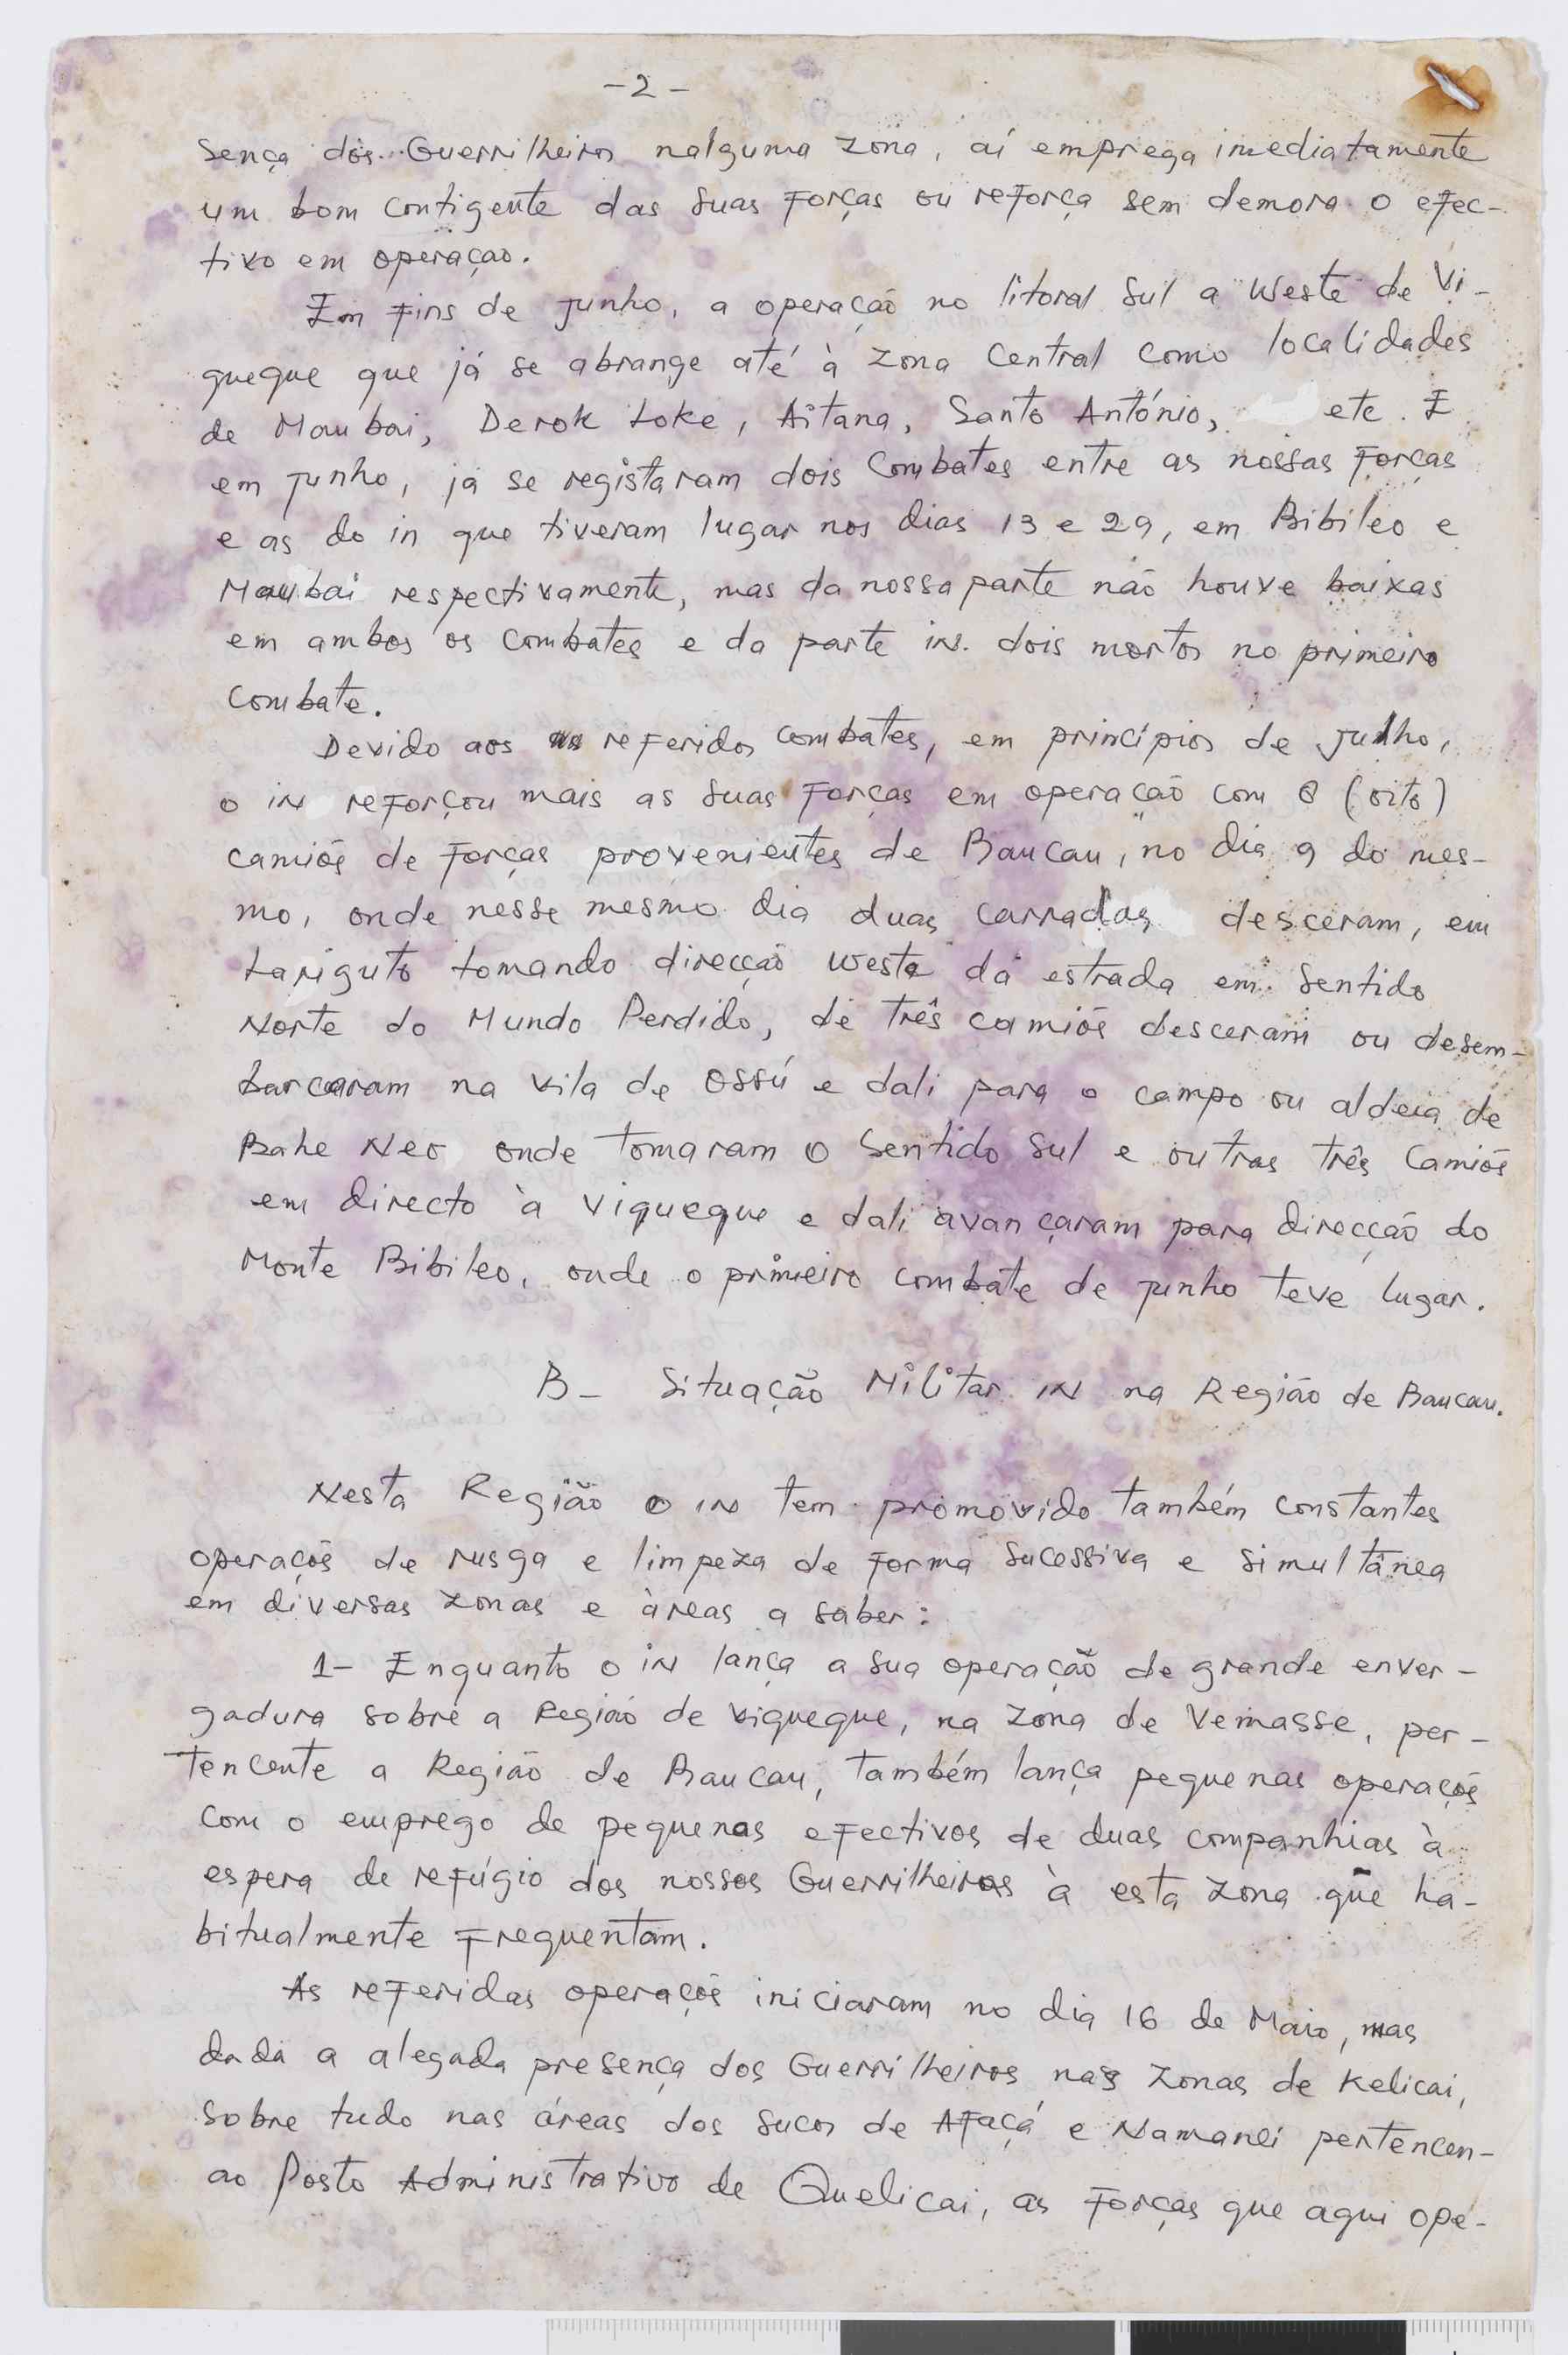 -2-
sença dos Guerrilheiros nalguma zona, aí emprega imediatamente
um bom contigente das suas Forças ou reforça sem demora o efec-
tivo em operaçao.
Em Fins de junho, a operação no litoral Sul a Weste de Vi-
queque que já se abrange até à zona Central como localidades
de Maubai, Derok Loke, Aitana, Santo António, etc. E
em junho, já se registaram dois Combates entre as nossas Forças
e as do in que tiveram lugar nos dias 13 e 29, em Bibileo e
Maubai respectivamente, mas da nossa parte não houve baixas
em ambos os Combates e da parte in. dois mortos no primeiro
Combate.
Devido aos referidos combates, em princípios de Julho,
o in reforçou mais as suas Forças em operação com 8 (oito)
camiõs de Forças provenientes de Baucau, no dia 9 do mes-
mo, onde nesse mesmo dia duas carradas desceram, em
Lariguto tomando direcção Weste da estrada em Sentido
Norte do Mundo Perdido, de três camiõs desceram ou desem-
barcaram na vila de Ossú e dali para o campo ou aldeia de
Bahe Neo onde tomaram o Sentido Sul e outras três Camiõs
em directo à Viqueque e dali avançaram para direcção do
Monte Bibileo, onde o primeiro combate de junho teve lugar.
B- Situação Militar IN na Região de Baucau.
Nesta Região o IN tem promovido também constantes
operaçõs de rusga e limpeza de Forma Sucessiva e simultânea
em diversas zonas e àreas a saber:
1- Enquanto o in lança a sua operação de grande enver-
gadura sobre a Região de Viqueque, na Zona de Vemasse, per-
tencente a Região de Baucau, também lança pequenas operaçõs
Com o emprego de pequenas efectivos de duas companhias à
espera de refúgio dos nossos Guerrilheiros à esta zona que ha-
bitualmente Frequentam.
As referidas operaçõs iniciaram no dia 16 de Maio, mas
dada a alegada presença dos Guerrilheiros nas Zonas de Kelicai,
sobre tudo nas áreas dos Sucos de Afaçá e Namanei pertencen-
ao Posto Administrativo de Quelicai, as Forças que aqui ope-